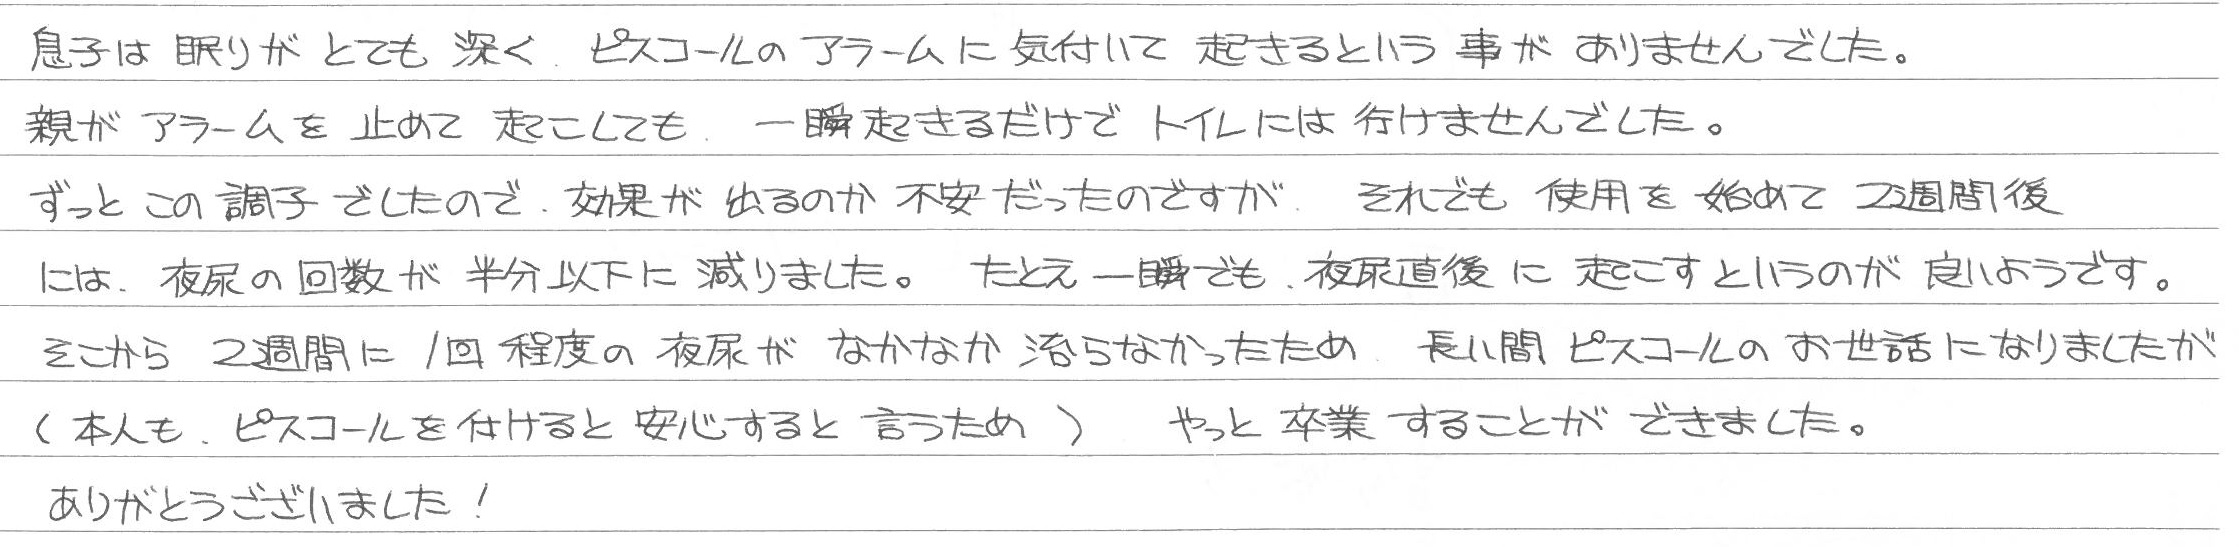 息子は眠りがとても深く、ピスコールのアラームに気付いて起きるという事がありませんでした。
親がアラームを止めて起こしても、一瞬起きるだけでトイレには行けませんでした。
ずっとこの調子でしたので、効果が出るのか不安だったのですが、それでも使用を始めて2週間後
には、夜尿の回数が半分以下に減りました。たとえ一瞬でも、夜尿直後に起こすというのが良いようです。
そこから2週間に1回程度の夜尿がなかなか治らなかったため、長い間ピスコールのお世話になりましたが
(本人も、ピスコールを付けると安心すると言うため)やっと卒業することができました。
ありがとうございました!